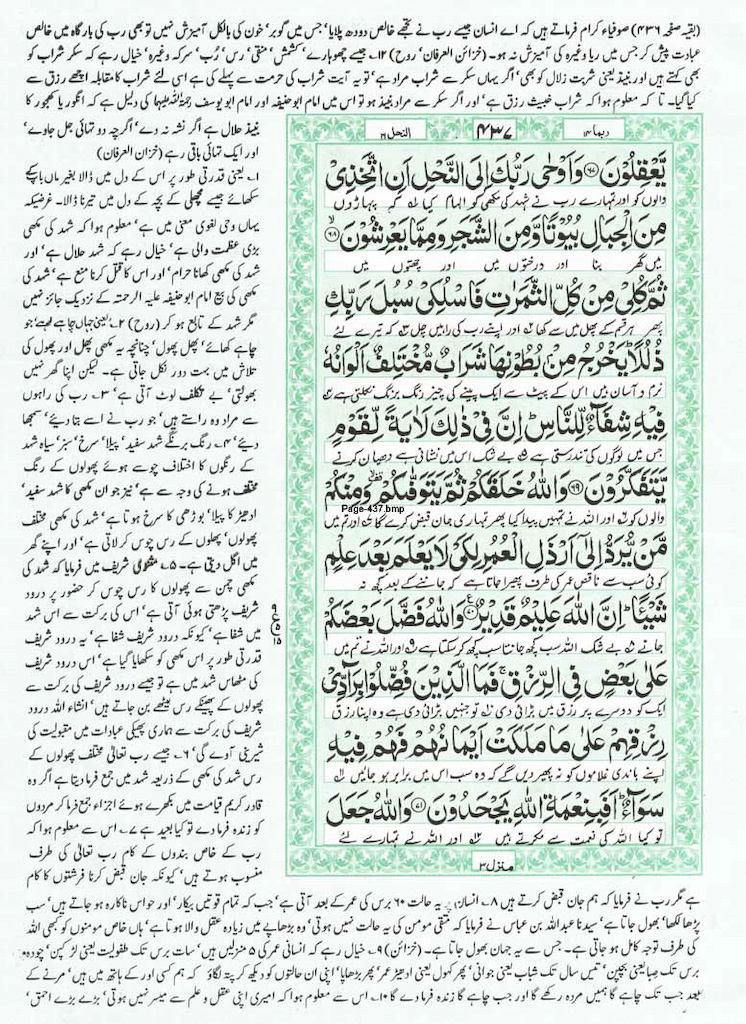 (بقیہ صفحہ ۴۳۶) صوفیاء کرام فرماتے ہیں کہ اے انسان جیسے رب نے تجھے خالص دودھ پلایا' جس میں گوبر' خون کی بالکل آمیزش نہیں تو بھی رب کی بارگاہ میں خالص
عبادت پیش کر جس میں ریا وغیرہ کی آمیزش نہ ہو۔ (خزائن العرفان' روح) ۱۲۔ جیسے چھوہارے' کشمش' منقی' رس' رُب' سرکہ وغیرہ' خیال رہے کہ سکر شراب کو
بھی کہتے ہیں اور نبیذ یعنی شربت زلال کو بھی' اگر یہاں سکر سے شراب مراد ہے' تو یہ آیت شراب کی حرمت سے پہلے کی ہے اسی لئے شراب کا مقابلہ اچھے رزق سے
کیا گیا۔ تا کہ معلوم ہو کہ شراب خبیث رزق ہے' اور اگر سکر سے مراد نبیذ ہو تو اس میں امام ابو حنیفہ اور امام ابو یوسف رحمۃ اللہ علیہما کی دلیل ہے کہ انگور یا کھجور کا
نبیذ حلال ہے اگر نشہ نہ دے' اگرچہ دو تہائی جل جاوے'
اور ایک تہائی باقی رہے (خزان العرفان)
ربما ۱۴
۴۳۷
النحل ۱۶
يَّعْقِلُوْنَ ۶۷ وَاَوْحٰى رَبُّكَ اِلَى النَّحْلِ اَنِ اتَّخِذِىْ
والوں کو اور تمہارے رب نے شہد کی مکھی کو الہام کیا کہ پہاڑوں
مِنَ الْجِبَالِ بُيُوْتًا وَّمِنَ الشَّجَرِ وَمِمَّا يَعْرِشُوْنَ ۶۸
میں گھر بنا اور درختوں میں اور چھتوں میں
ثُمَّ كُلِىْ مِنْ كُلِّ الثَّمَرٰتِ فَاسْلُكِىْ سُبُلَ رَبِّكِ
پھر ہر قسم کے پھل میں سے کھا اور اپنے رب کی راہیں چل کہ تیرے لئے
ذُلُلًا يَخْرُجُ مِنْۢ بُطُوْنِهَا شَرَابٌ مُّخْتَلِفٌ اَلْوَانُهٗ
نرم و آسان ہیں اس کے پیٹ سے ایک پینے کی چیز رنگ برنگ نکلتی ہے
فِيْهِ شِفَآءٌ لِّلنَّاسِ اِنَّ فِىْ ذٰلِكَ لَاٰيَةً لِّقَوْمٍ
جس میں لوگوں کی تندرستی ہے بے شک اس میں نشانی ہے دھیان کرنے
يَّتَفَكَّرُوْنَ ۶۹ وَاللّٰهُ خَلَقَكُمْ ثُمَّ يَتَوَفّٰىكُمْ وَمِنْكُمْ
Page-437.bmp
والوں کو اور اللہ نے تمہیں پیدا کیا پھر تمہاری جان قبض کرے گا اور تم میں
مَّنْ يُّرَدُّ اِلٰٓى اَرْذَلِ الْعُمُرِ لِكَىْ لَا يَعْلَمَ بَعْدَ عِلْمٍ
کوئی سب سے ناقص عمر کی طرف پھیرا جاتا ہے کہ جاننے کے بعد کچھ نہ
شَيْـًٔا اِنَّ اللّٰهَ عَلِيْمٌ قَدِيْرٌ ۷۰ وَاللّٰهُ فَضَّلَ بَعْضَكُمْ
جانے بے شک اللہ سب کچھ جانتا سب کچھ کر سکتا ہے اور اللہ نے تم میں
عَلٰى بَعْضٍ فِى الرِّزْقِ فَمَا الَّذِيْنَ فُضِّلُوْا بِرَآدِّىْ
ایک کو دوسرے پر رزق میں بڑائی دی تو جنہیں بڑائی دی ہے وہ اپنا رزق
رِزْقِهِمْ عَلٰى مَا مَلَكَتْ اَيْمَانُهُمْ فَهُمْ فِيْهِ
اپنے باندی غلاموں کو نہ پھیر دیں گے کہ وہ سب اس میں برابر ہو جائیں
سَوَآءٌ اَفَبِنِعْمَةِ اللّٰهِ يَجْحَدُوْنَ ۷۱ وَاللّٰهُ جَعَلَ
تو کیا اللہ کی نعمت سے مکرتے ہیں اور اللہ نے تمہارے لئے
منزل ۳
۱۔ یعنی قدرتی طور پر اس کے دل میں ڈالا بغیر ماں باپ کے
سکھائے جیسے مچھلی کے بچہ کے دل میں تیرنا ڈالا۔ غرضیکہ
یہاں وحی لغوی معنی میں ہے' معلوم ہوا کہ شہد کی مکھی
بڑی عظمت والی ہے' خیال رہے کہ شہد حلال ہے' اور
شہد کی مکھی کھانا حرام' اور اس کا قتل کرنا منع ہے' شہد کی
مکھی کی بیع امام ابو حنیفہ علیہ الرحمتہ کے نزدیک جائز نہیں
مگر شہد کے تابع ہو کر (روح) ۲۔ یعنی جہاں چاہے جیسے جو
چاہے کھائے' پھل پھول' چنانچہ یہ مکھی پھل اور پھول کی
تلاش میں بہت دور نکل جاتی ہے۔ لیکن اپنا گھر نہیں
بھولتی' بے تکلف لوٹ آتی ہے' ۳۔ رب کی راہوں
سے مراد وہ راستے ہیں' جو رب نے اسے بتا دیئے' سمجھا
دیئے' ۴۔ رنگ برنگے شہد سفید' پیلا' سرخ' سبز' سیاہ شہد
کے رنگوں کا اختلاف چوسے ہوئے پھولوں کے رنگ
مختلف ہونے کی وجہ سے ہے' نیز جوان مکھی کا شہد سفید'
ادھیڑ کا پیلا' بوڑھی کا سرخ ہوتا ہے' شہد کی مکھی مختلف
پھولوں' پھلوں کے رس چوس کر لاتی ہے' اور اپنے گھر
میں اگل دیتی ہے۔ ۵۔ مثنوی شریف میں فرمایا کہ شہد کی
مکھی چمن سے پھولوں کا رس چوس کر حضور پر درود
شریف پڑھتی ہوئی آتی ہے' اس کی برکت سے اس شہد
میں شفا ہے' کیونکہ درود شریف شفا ہے' یہ درود شریف
قدرتی طور پر اس مکھی کو سکھایا گیا ہے' اس درود شریف
کی مٹھاس شہد میں ہے تو جیسے درود شریف کی برکت سے
پھولوں کے پھیکے رس میٹھے بن جاتے ہیں' انشاء اللہ درود
شریف کی برکت سے ہماری پھیکی عبادات میں مقبولیت کی
شیرینی آوے گی' ۶۔ جیسے رب تعالٰی مختلف پھولوں کے
رس شہد کی مکھی کے ذریعہ شہد میں جمع فرما دیتا ہے اگر وہ
قادر کریم قیامت میں بکھرے ہوئے اجزاء جمع فرما کر مردوں
کو زندہ فرما دے تو کیا بعید ہے ۷۔ اس سے معلوم ہوا کہ
رب کے خاص بندوں کے کام رب تعالٰی کی طرف
منسوب ہوتے ہیں' کیونکہ جان قبض کرنا فرشتوں کا کام
ہے مگر رب نے فرمایا کہ ہم جان قبض کرتے ہیں ۸۔ انسان پر یہ حالت ۶۰ برس کی عمر کے بعد آتی ہے' جب کہ تمام قوتیں بیکار' اور حواس ناکارہ ہو جاتے ہیں' سب
پڑھا لکھا' بھول جاتا ہے' سیدنا عبداللہ بن عباس نے فرمایا کہ متقی مومن کی یہ حالت نہیں ہوتی' وہ بڑھاپے میں زیادہ عقل والا ہوتا ہے' ہاں خاص مومنوں کو بھی اللہ
کی طرف توجہ کامل ہو جاتی ہے۔ جس سے یہ جہان بھول جاتا ہے۔ (خزائن) ۹۔ خیال رہے کہ انسانی عمر کی ۵ منزلیں ہیں' سات برس تک طفولیت یعنی لڑکپن' چودہ
برس تک صبا یعنی بچپن' تیس سال تک شباب یعنی جوانی' پھر کہول یعنی ادھیڑ عمر' پھر بڑھاپا' اپنی ان حالتوں کو دیکھ کر پتہ لگاؤ کہ ہم کسی اور کے ہاتھ میں ہیں' مرنے کے
بعد جب تک چاہے گا ہمیں مردہ رکھے گا اور جب چاہے گا زندہ فرما دے گا ۱۰۔ اس سے معلوم ہوا کہ امیری اپنی عقل و علم سے میسر نہیں ہوتی' بڑے بڑے احمق'